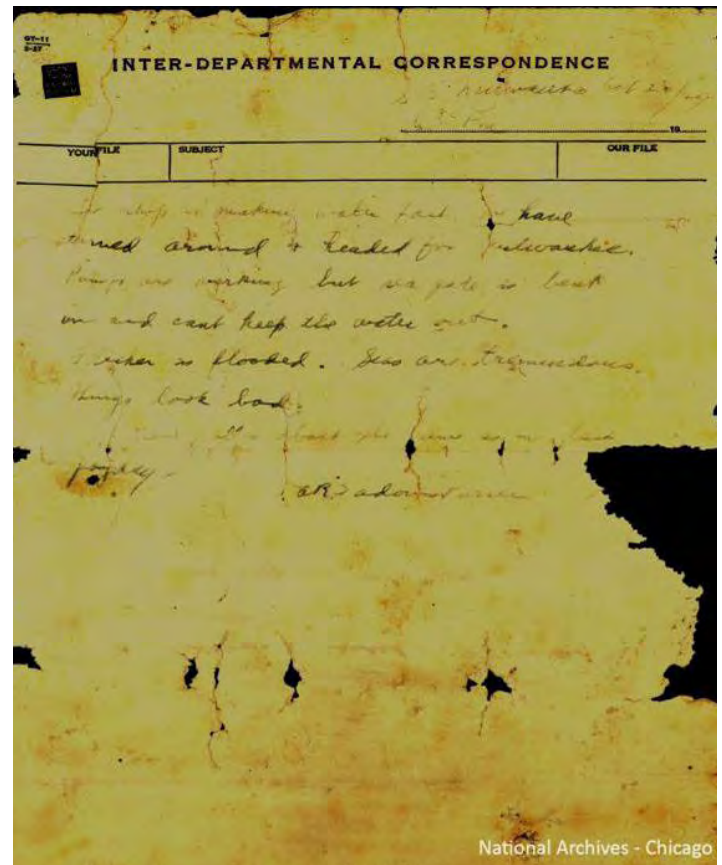 GT-11
3-27
INTER-DEPARTMENTAL CORRESPONDENCE
S S Milwaukee Oct 22/29
19
YOUR FILE SUBJECT OUR FILE
ship is making water fast. have
turned around & headed for Milwaukee.
Pumps are working but sea gate is bent
in and cant keep the water out.
Flicker is flooded. Seas are tremendous.
things look bad.
crew is on last
payday -
A R Sadon
National Archives - Chicago